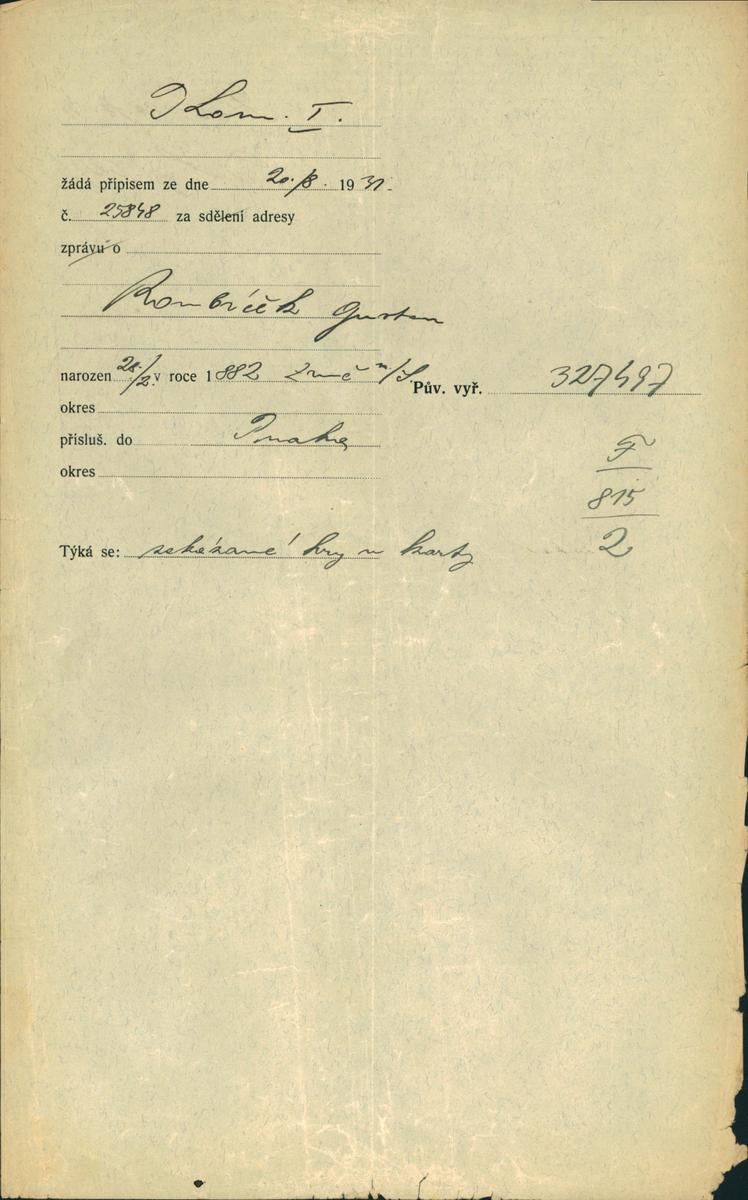 Kom. I.
žádá přípisem ze dne 20./8. 1931.
č. 25848 za sdělení adresy
zprávu o
Gustav
narozen 28./2. v roce 1882
Pův. vyř. 327497
okres
přísluš. do Praha
F
okres
815
2
Týká se: zakázané hry v karty